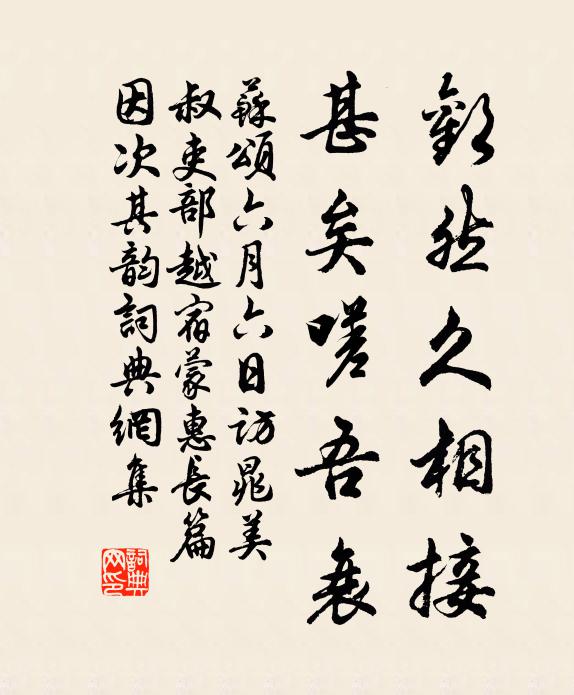 歡然久相接
甚矣嗟吾衰
蘇頌六月六日訪晁美
叔吏部越宿蒙惠長篇
因次其韵詞典網集
詞典
网印